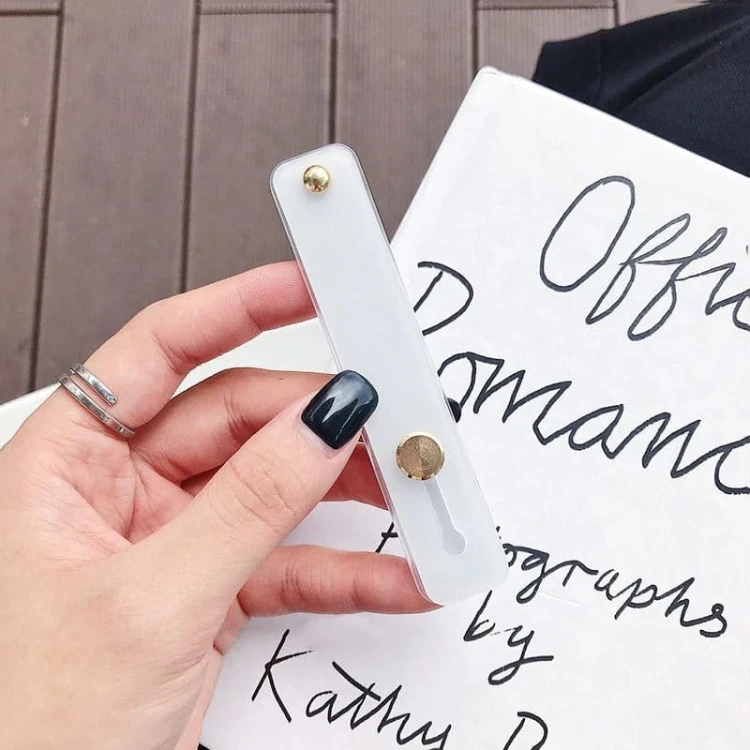 Offi
Romanc
ographs
by
Kathy R